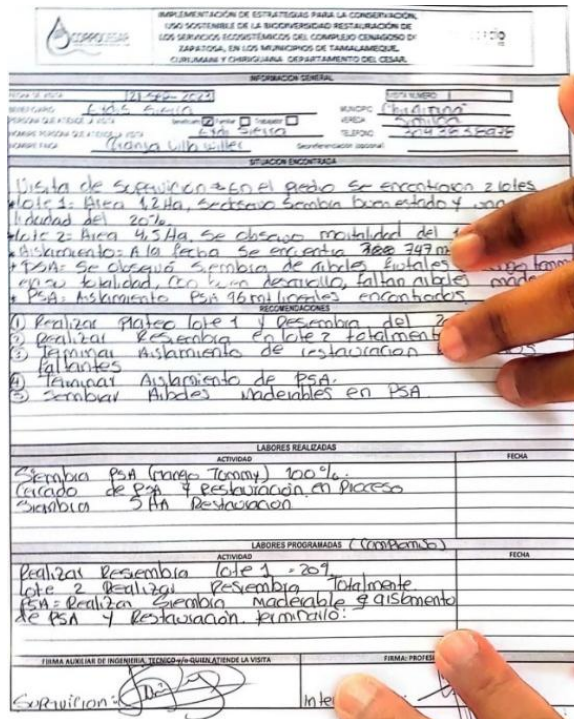 IMPLEMENTACIÓN DE ESTRATEGIAS PARA LA CONSERVACIÓN,
USO SOSTENIBLE DE LA BIODIVERSIDAD RESTAURACIÓN DE
LOS SERVICIOS ECOSISTÉMICOS DEL COMPLEJO CENAGOSO DE
ZAPATOSA, EN LOS MUNICIPIOS DE TAMALAMEQUE,
CURUMANI Y CHIRIGUANA DEPARTAMENTO DEL CESAR.
CORPOCESAR
INFORMACIÓN GENERAL
FECHA DE VISITA 21-SEP-2023 VISITA NUMERO 1
BENEFICIARIO Eidis Sierra MUNICIPIO
PERSONA QUE ATIENDE LA VISITA Familiar Trabajador VEREDA
NOMBRE PERSONA QUE ATIENDE LA VISITA Eidis Sierra TELEFONO
NOMBRE FINCA Granja Georeferenciación (opcional)
SITUACIÓN ENCONTRADA
Visita de Supervicion En el predio se encontraron 2 lotes
lote 1: Area 1.2 Ha, Siembra buen estado y una
del 20%.
lote 2: Area 4.5 Ha, Se observo mortalidad del
Aislamiento: A la fecha se encuentra 747 m
PSA: Se observó siembra de arboles frutales
en su totalidad, con buen desarrollo, faltan arboles
PSA: Aislamiento PSA 96 mt lineales encontrados
RECOMENDACIONES
① Realizar Plateo lote 1 y Resiembra del
② Realizar Resiembra en lote 2 totalment
③ Terminar Aislamiento de restauracion
faltantes
④ Terminar Aislamiento de PSA.
⑤ Sembrar Arboles Maderables en PSA
LABORES REALIZADAS
ACTIVIDAD FECHA
Siembra PSA (mango Tommy) 100%.
Cercado de PSA y Restauración en Proceso
Siembra 5 HA Restauracion
LABORES PROGRAMADAS (Compromiso)
ACTIVIDAD FECHA
Realizar Resiembra lote 1
lote 2 Realizar Resiembra Totalmente
PSA = Realizar Siembra maderable y aislamento
de PSA y Restauración
FIRMA AUXILIAR DE INGENIERIA, TECNICO y/o QUIEN ATIENDE LA VISITA FIRMA: PROFESI
Supervicion: Inte